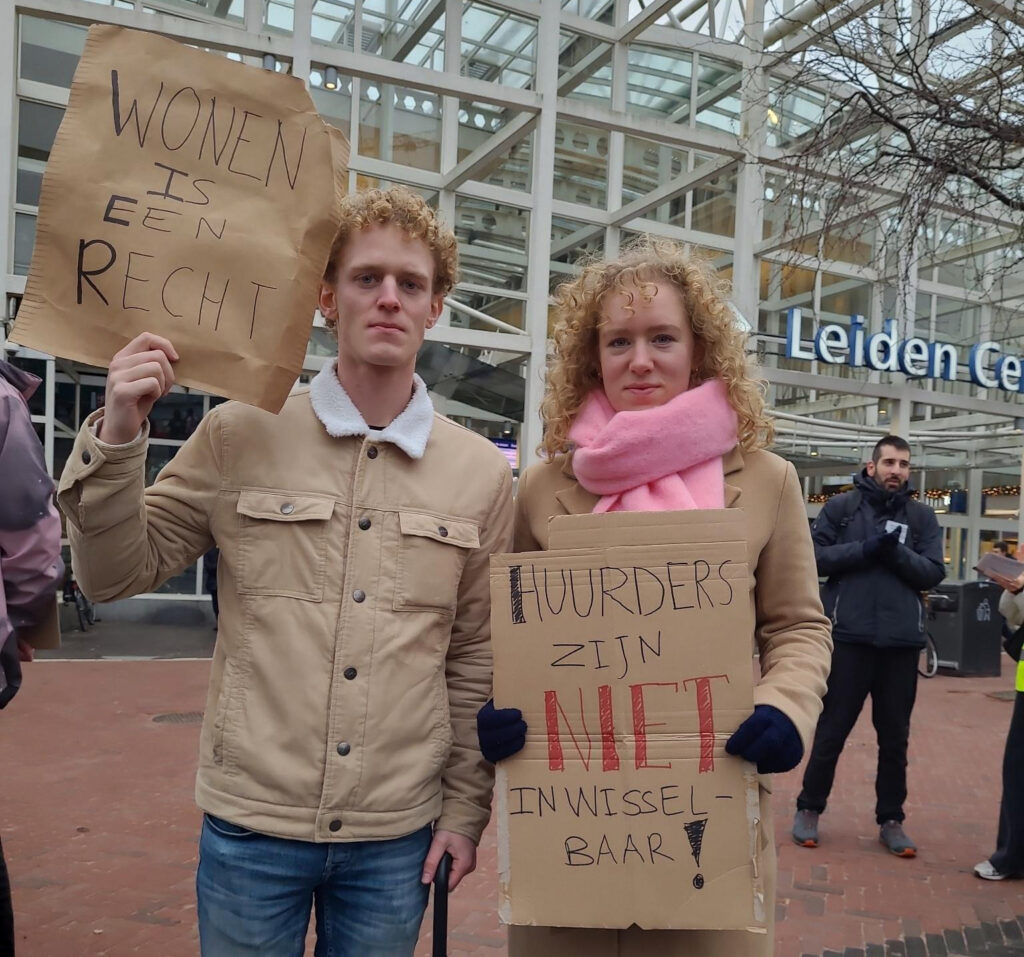 WONEN
IS
EEN
RECHT
Leiden Ce
HUURDERS
ZIJN
NIET
INWISSEL-
BAAR!